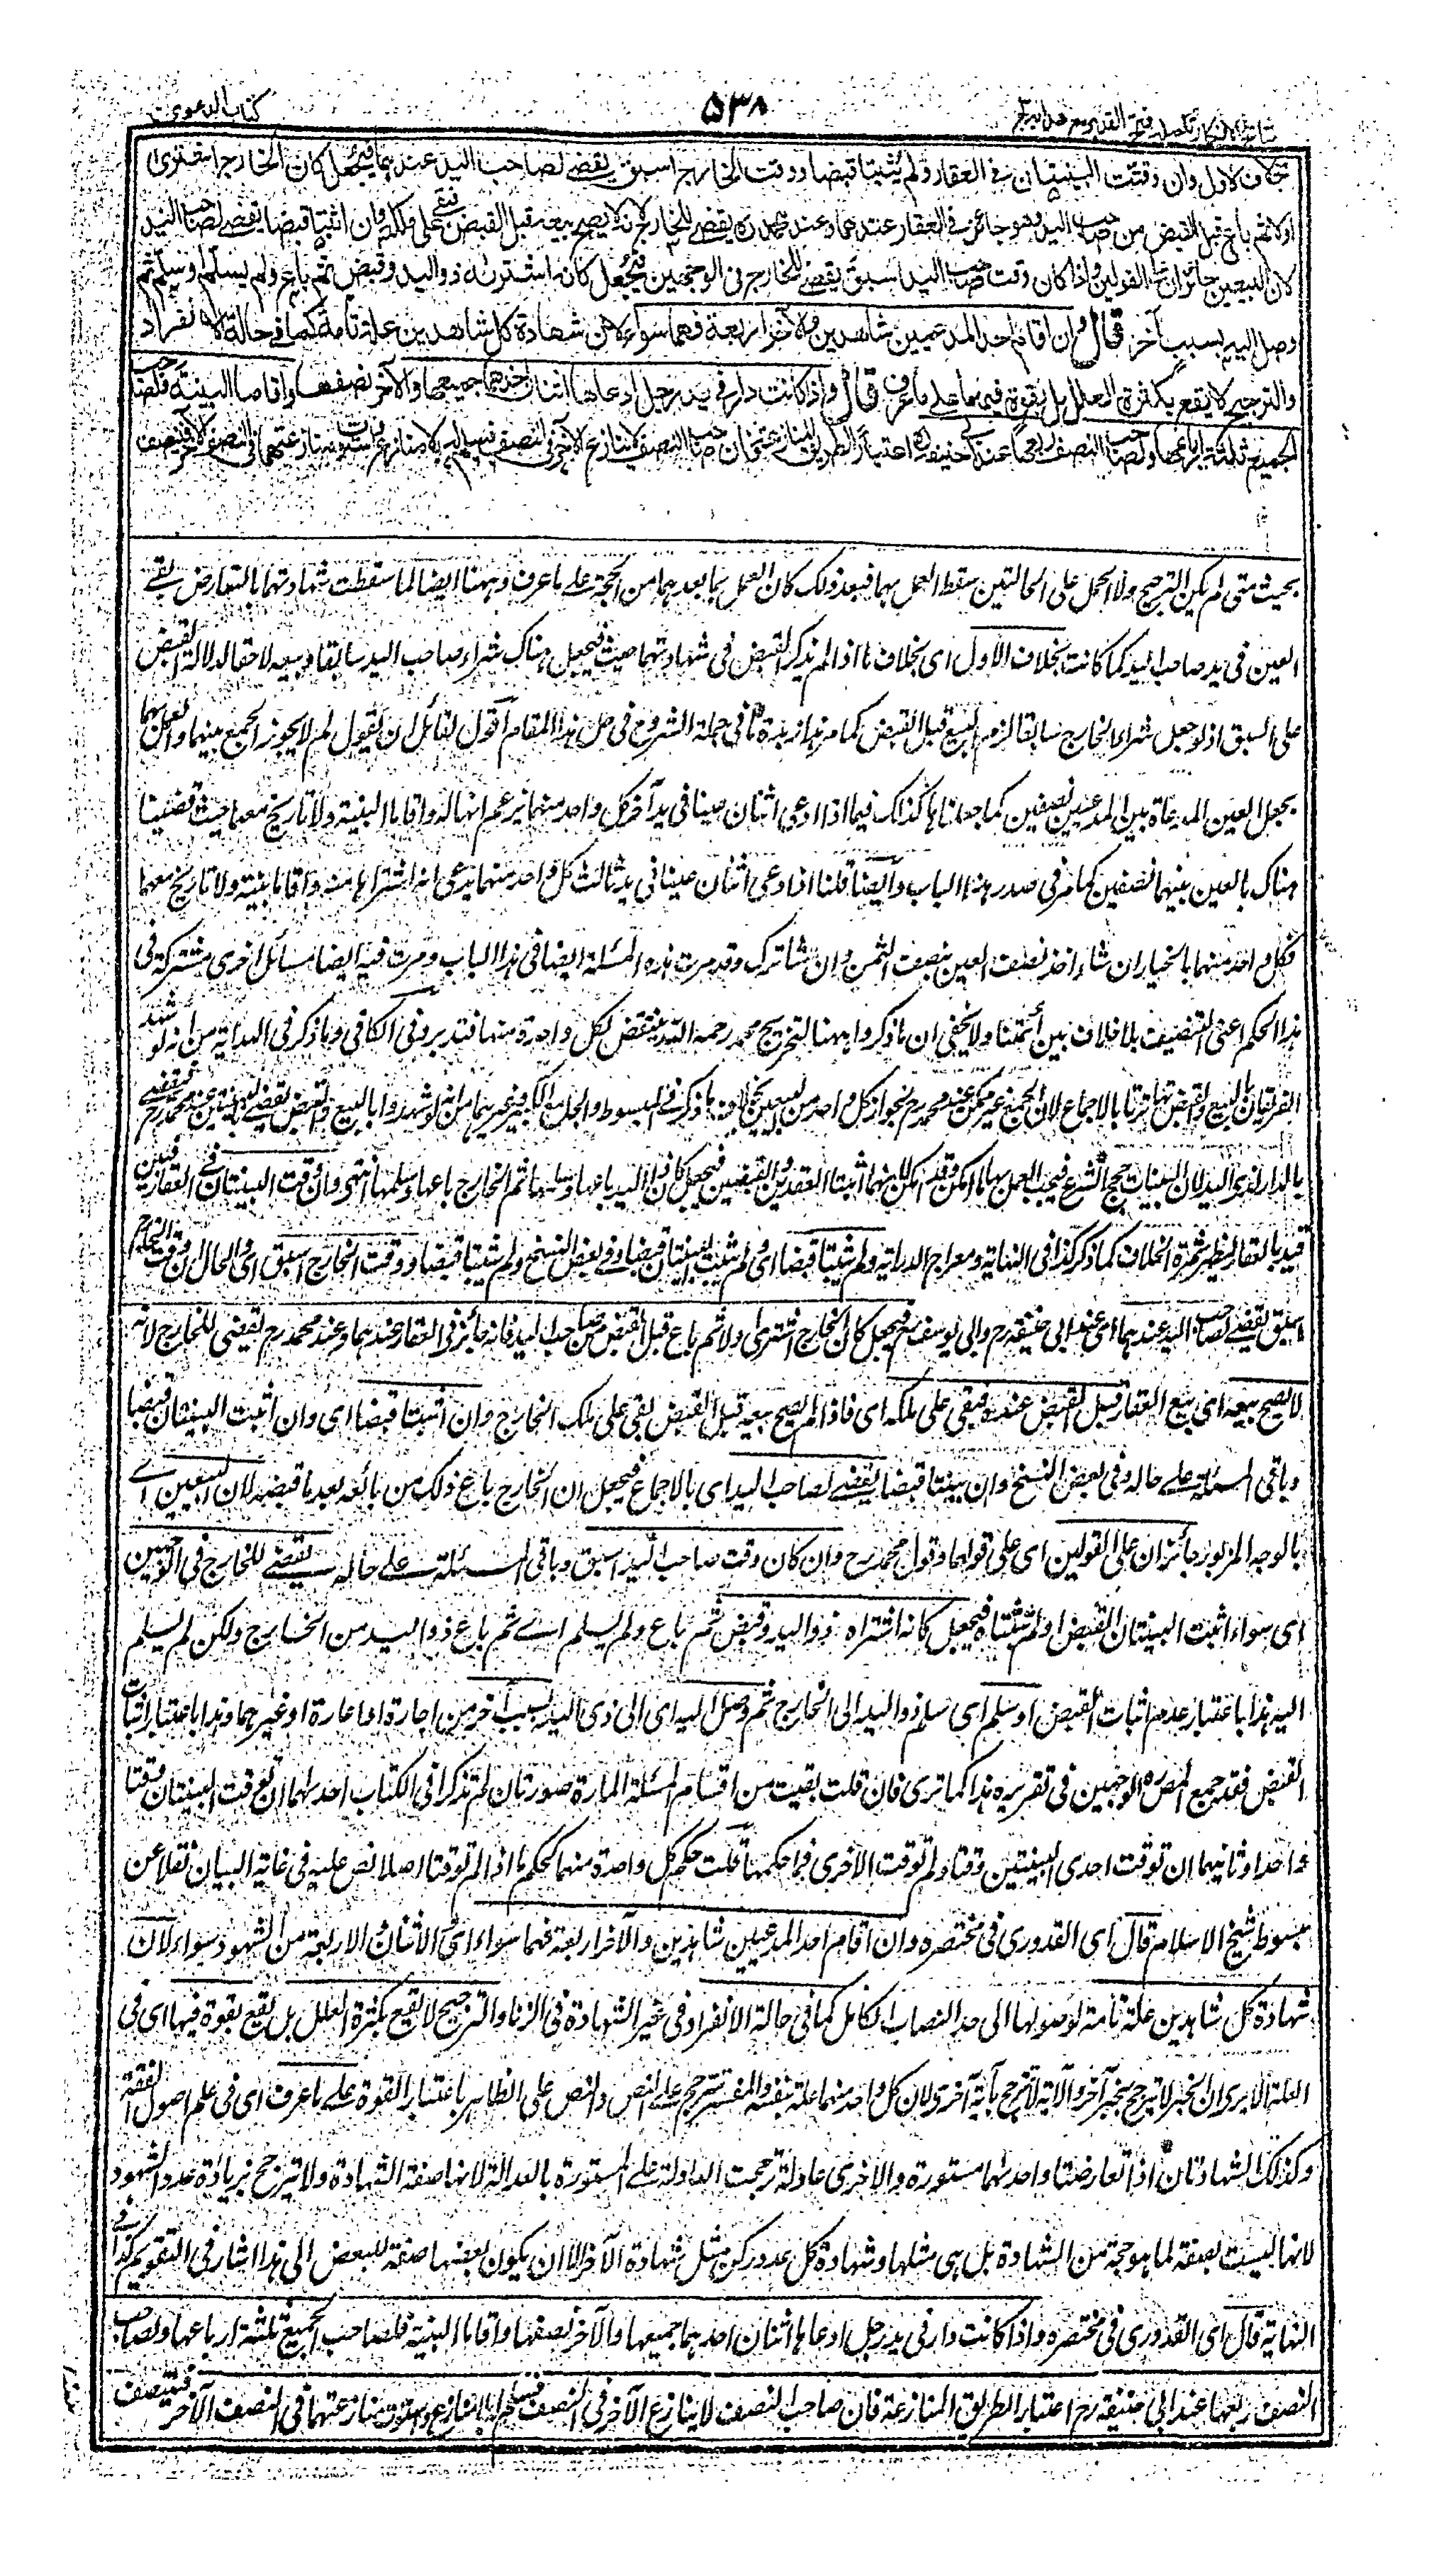 نتائج الافكار تكملة فتح القدير مع هدايه ج ٣
٥٣٨
كتاب الدعوى
بخلاف الاول وان وقتت البينتان في العقار ولم يثبتا قبضا ووقت الخارج اسبق يقضى لصاحب اليد عندهما فيجعل كان الخارج اشترى
اولا ثم باع قبل القبض من صاحب اليد وهو جائز في العقار عندهما وعند محمد ره يقضى للخارج لانه لا يصح بيعه قبل القبض فبقى على ملكه وان اثبتا قبضا يقضى لصاحب اليد
لان البيعين جائزان على القولين واذا كان وقت صاحب اليد اسبق يقضى للخارج فى الوجهين فيجعل كأنه اشتراه ذو اليد وقبض ثم باع ولم يسلم او سلم ثم
وصل اليه بسبب آخر قال وان اقام احد المدعيين شاهدين والآخر اربعة فهما سواء لان شهادة كل شاهدين علة تامة كما في حالة الانفراد
والترجيح لا يقع بكثرة العلل بل بقوة فيها على ما عرف قال واذا كانت دار في يد رجل ادعاها اثنان احدهما جميعها والآخر نصفها واقاما البينة فلصاحب
الجميع ثلثة ارباعها ولصاحب النصف ربعها عند ابى حنيفة ره اعتبارا لطريق المنازعة فان صاحب النصف لا ينازع الآخر فى النصف فيسلم له بلا منازع واستوت منازعتهما فى النصف الآخر فينصف
بحيث متى لم يكن الترجيح ولا الحمل على الحالتين سقط العمل بهما فبعد ذلك كان العمل بما بعدهما من الحجة على ما عرف وههنا ايضا لما سقطت شهادتهما بالتعارض بقى
العين فى يد صاحب اليد كما كانت بخلاف الاول اى بخلاف ما اذا لم يذكر القبض فى شهادتهما حيث فيجعل هناك شراء صاحب اليد سابقا وبيعه لاحقا لدلالة القبض
على السبق اذ لو جعل شراء الخارج سابقا لزم البيع قبل القبض كما مر هذا زبدة ما في جملة الشروح فى حل هذا المقام اقول لقائل ان يقول لم لا يجوز الجمع بينهما والعمل بهما
بجعل العين المدعاة بين المدعيين نصفين كما جعلناها كذلك فيما اذا ادعى اثنان عينا فى يد آخر كل واحد منهما يزعم انها له واقاما البينة ولا تاريخ معهما حيث قضينا
هناك بالعين بينهما نصفين كما مر في صدر هذا الباب وايضا قلنا اذا ادعى اثنان عينا فى يد ثالث كل واحد منهما يدعى انه اشتراها منه واقاما بينة ولا تاريخ معهما
فكل واحد منهما بالخيار ان شاء اخذ نصف العين بنصف الثمن وان شاء ترك وقد مرت هذه المسئلة ايضا فى هذا الباب ومرت فيه ايضا مسائل اخرى مشتركة فى
هذا الحكم اعنى التنصيف بلا خلاف بين أئمتنا ولا يخفى ان ما ذكروا ههنا لتخريج محمد رحمه الله ينتقض بكل واحدة منها فتدبر وفى الكافى وما ذكر فى الهداية من انه لو شهد
الفريقان بالبيع والقبض تهاترتا بالاجماع لان الجمع غير ممكن عند محمد رح لجواز كل واحد من البيعين يخالفه ما ذكر فى المبسوط والجامع الكبير وغيرهما من انه لو شهدوا بالبيع والقبض يقضى بالبينتين عند محمد رح فيقضى
بالدار لذى اليد لان البينات حجج الشرع فيجب العمل بها ما امكن وقد امكن لانهما اثبتا العقدين والقبضين فيجعل كان ذا اليد باعها وسلمها ثم الخارج باعها وسلمها انتهى وان وقتت البينتان فى العقار وقتين
قيد بالعقار ليظهر ثمرة الخلاف كما ذكر كذا فى النهاية ومعراج الدراية ولم يثبتا قبضا اى ولم يثبت البينتان قبضا وفى بعض النسخ ولم تثبتا قبضا ووقت الخارج اسبق اى والحال ان وقت الخارج
اسبق يقضى لصاحب اليد عندهما اى عند ابى حنيفة رح وابى يوسف رح فيجعل كان الخارج اشترى اولا ثم باع قبل القبض من صاحب اليد فانه جائز فى العقار عندهما وعند محمد رح يقضى للخارج لانه
لا يصح بيعه اى بيع العقار قبل القبض عنده فبقى على ملكه اى فاذا لم يصح بيعه قبل القبض بقى على ملك الخارج وان اثبتا قبضا اى وان اثبتت البينتان قبضا
وباقى المسئلة على حاله وفى بعض النسخ وان بينتا قبضا يقضى لصاحب اليد اى بالاجماع فيجعل ان الخارج باع ذلك من بائعه بعد ما قبضه لان البيعين اى
بالوجه المزبور جائزان على القولين اى على قولهما وقول محمد رح وان كان وقت صاحب اليد اسبق وباقى المسئلة على حاله يقضى للخارج فى الوجهين
اى سواء اثبتت البينتان القبض او لم تثبتاه فيجعل كانه اشتراه ذو اليد وقبض ثم باع ولم يسلم اى ثم باع ذو اليد من الخارج ولكن لم يسلم
اليه هذا باعتبار عدم اثبات القبض او سلم اى سلم ذو اليد الى الخارج ثم وصل اليه اى الى ذى اليد بسبب آخر من اجارة او اعارة او غيرهما وهذا باعتبار اثبات
القبض فقد جمع المص ره الوجهين فى تقريره هذا كما ترى فان قلت بقيت من اقسام المسئلة المارة صورتان لم تذكرا فى الكتاب احدهما ان توقت البينتان وقتا
واحدا وثانيهما ان توقت احدى البينتين وقتا ولم توقت الاخرى فما حكمهما قلت حكم كل واحدة منهما كحكم ما اذا لم توقتا اصلا نص عليه فى غاية البيان نقلا عن
مبسوط شيخ الاسلام قال اى القدورى فى مختصره وان اقام احد المدعيين شاهدين والآخر اربعة فهما سواء اى الاثنان والاربعة من الشهود سواء لان
شهادة كل شاهدين علة تامة لوصولها الى حد النصاب الكامل كما فى حالة الانفراد فى غير الشهادة فى الزنا والترجيح لا يقع بكثرة العلل بل يقع بقوة فيها اى فى
العلة الا يرى ان الخبر لا يترجح بخبر آخر والآية لا تترجح بآية اخرى لان كل واحد منهما علة بنفسه والمفسر ترجح على النص والنص على الظاهر باعتبار القوة على ما عرف اى فى علم اصول الفقه
وكذلك الشهادتان اذا تعارضتا واحدهما مستورة والاخرى عادلة ترجحت العادلة على المستورة بالعدالة لانها صفة الشهادة ولا تترجح بزيادة عدد الشهود
لانها ليست بصفة لما هو حجة من الشهادة بل هى مثلها وشهادة كل عدد ركن مثل شهادة الآخر لا ان يكون بعضها صفة للبعض الى هذا اشار فى التقويم كذا فى
النهاية قال اى القدورى فى مختصره واذا كانت دار فى يد رجل ادعاها اثنان احدهما جميعها والآخر نصفها واقاما البينة فلصاحب الجميع ثلثة ارباعها ولصاحب
النصف ربعها عند ابى حنيفة رح اعتبارا لطريق المنازعة فان صاحب النصف لا ينازع الآخر فى النصف فيسلم له بلا منازع واستوت منازعتهما فى النصف الآخر فينتصف